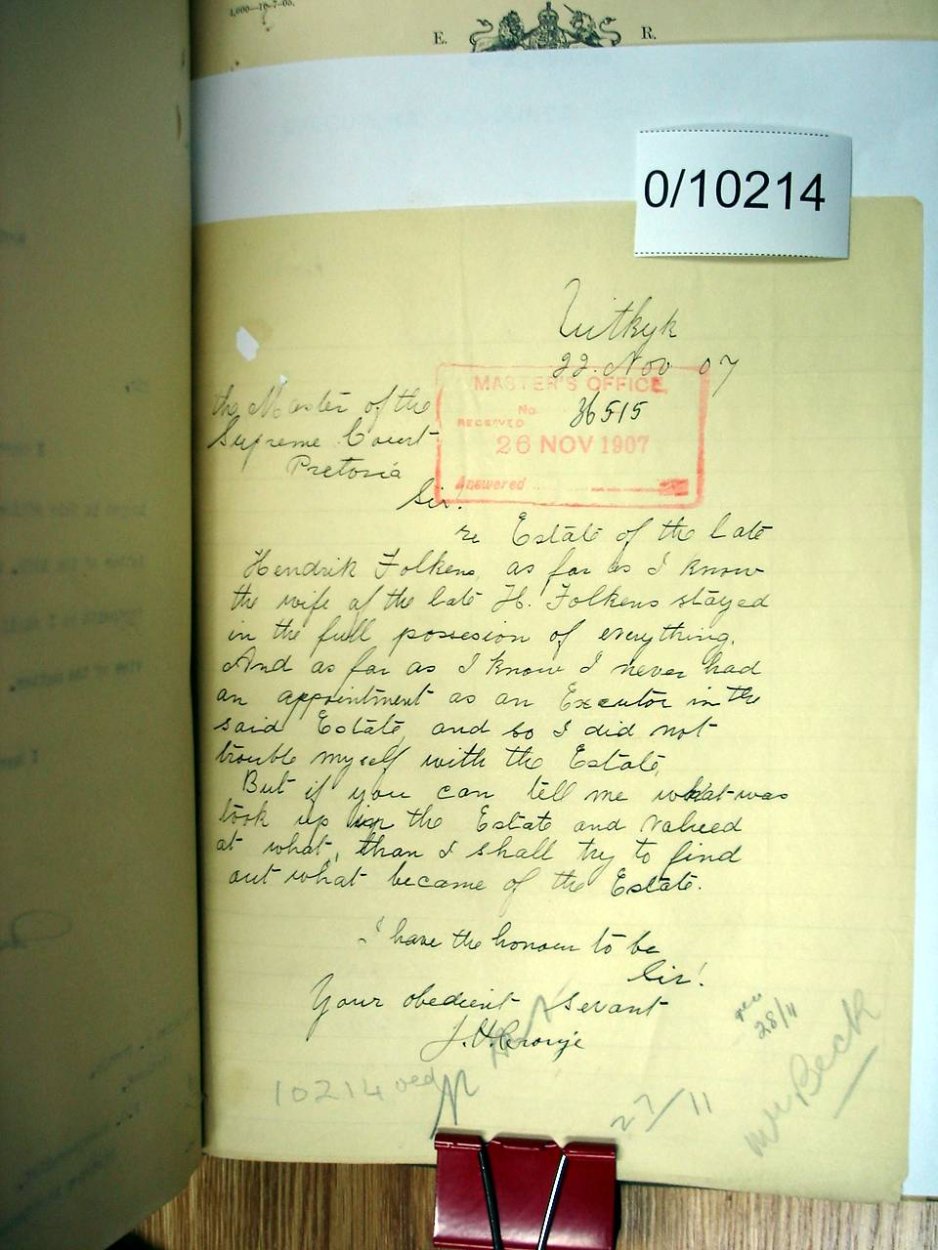 4,000—10-7-05.
E. R.
0/10214
Uitkyk
22. Nov 07
MASTER'S OFFICE
the Master of the
No. 36515
RECEIVED
Supreme Court
26 NOV 1907
Pretoria
Answered
Sir!
re Estate of the late
Hendrik Folkens, as far as I know
the wife of the late H. Folkens stayed
in the full possesion of everything.
And as far as I know I never had
an appointment as an Executor in the
said Estate, and so I did not
trouble myself with the Estate,
But if you can tell me what was
took up in the Estate and valued
at what, than I shall try to find
out what became of the Estate.
I have the honour to be
Sir!
Your obedient Servant
J. Cronje
28/11
10214
27/11
Mr Beck